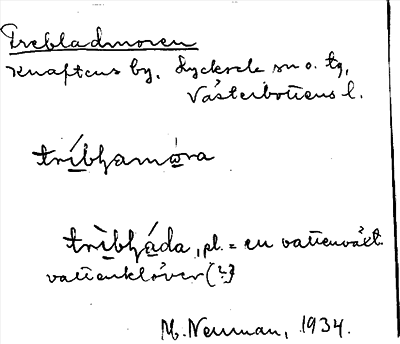 Trebladmoren
Knaftens by, Lycksele sn o. tg,
Västerbottens l.
tríbḷamὼra
trìbḷáda, pl. = en vattenväxt.
vattenklöver (?)
M. Neuman, 1934.